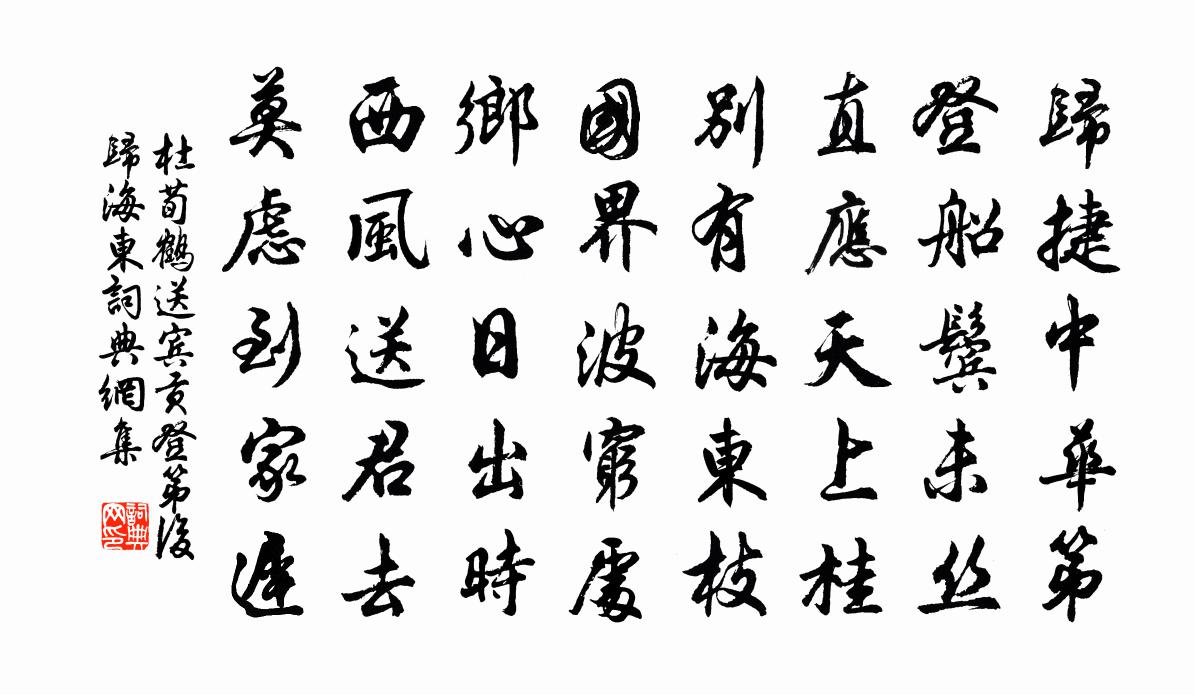 歸捷中華第
登船鬢未丝
直應天上桂
別有海東枝
國界波窮處
鄉心日出時
西風送君去
莫慮到家遲
杜荀鶴送宾贡登第後
歸海東詞典網集
詞典
网印